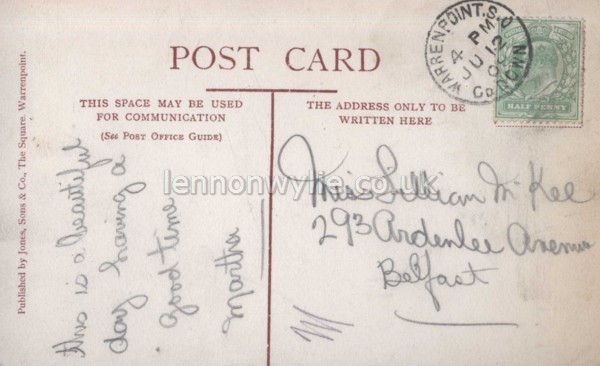 POST CARD
THIS SPACE MAY BE USED
FOR COMMUNICATION
(See POST OFFICE GUIDE)
THE ADDRESS ONLY TO BE
WRITTEN HERE
WARRENPOINT. S.O
4 PM
JU 12
Co. DOWN
HALF PENNY
Published by Jones, Sons & Co., The Square, Warrenpoint.
this is a beautiful
day having a
good time
Martha
Miss Lillian McKee
293 Ardenlee Avenue
Belfast
lennonwylie.co.uk